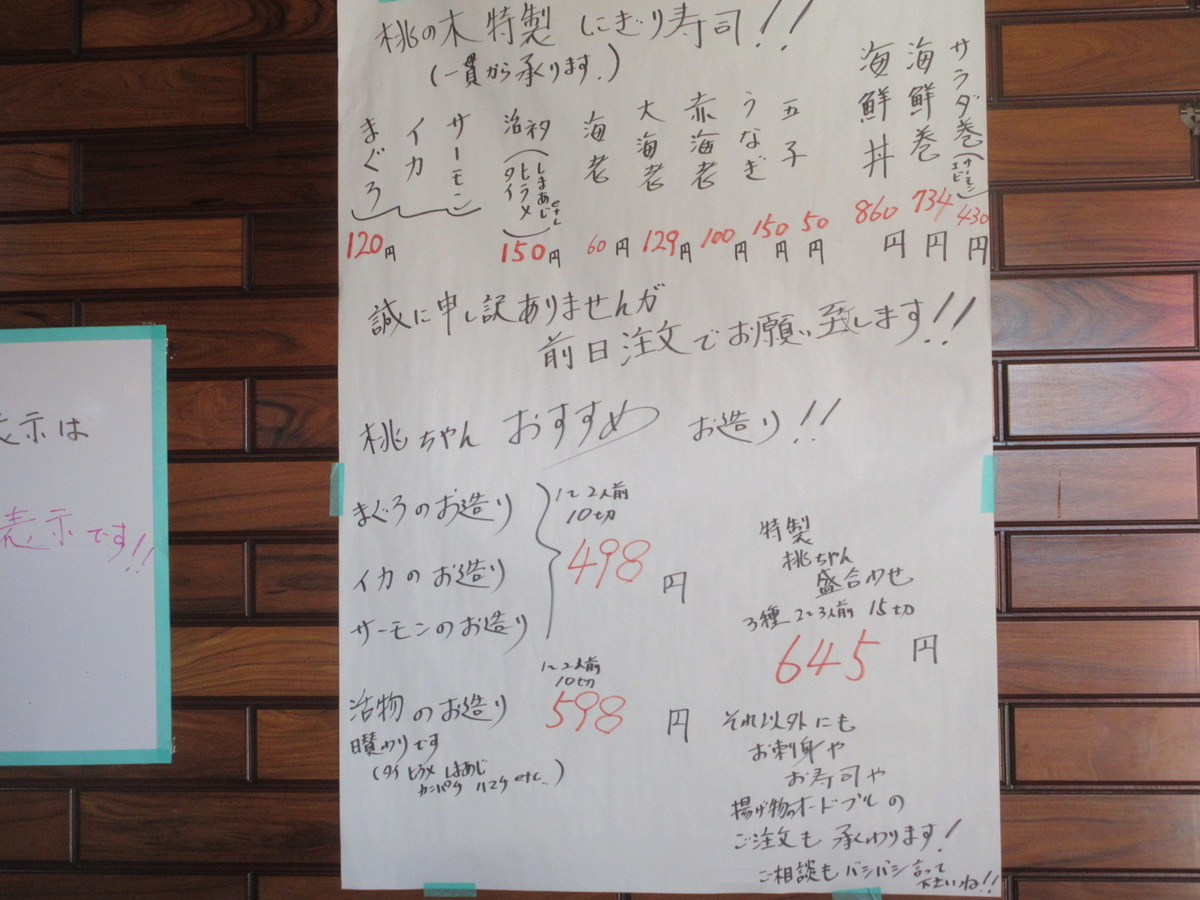 桃の木 特製 にぎり寿司!!
(一貫から承ります。)
まぐろ
イカ
サーモン
120円
活ネタ(タイ ヒラメ しまあじ etc)
150円
海老
60円
大海老
129円
赤海老
100円
うなぎ
150円
玉子
50円
海鮮丼
860円
海鮮巻
734円
サラダ巻(サーモン エビ)
430円
誠に申し訳ありませんが
前日注文でお願い致します!!
桃ちゃん おすすめ お造り!!
まぐろのお造り
イカのお造り
サーモンのお造り
1〜2人前
10切
498円
活物のお造り
日替わりです
(タイ ヒラメ しまあじ
カンパチ ハマチ etc..)
1〜2人前
10切
598円
特製
桃ちゃん
盛合わせ
3種 2〜3人前 15切
645円
それ以外にも
お刺身や
お寿司や
揚げ物オードブルの
ご注文も承わります!
ご相談もバシバシ言って
下さいね!!
表示は
表示です!!